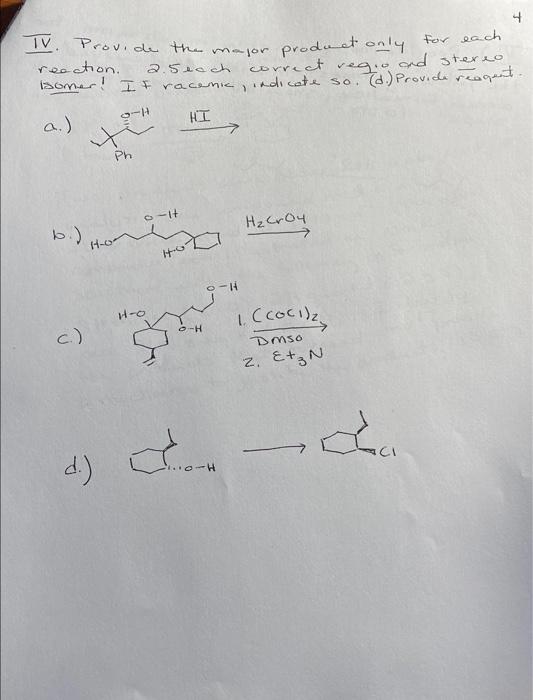 4
IV. Provide the major product only for each
reaction. 2.5 each correct regio and stereo
isomer! If racemic, indicate so. (d.) Provide reagent.
a.)
O-H
HI
Ph
b.)
O-H
H-O
H-O
H2CrO4
c.)
O-H
H-O
O-H
1. (COCl)2
DMSO
2. Et3N
d.)
...O-H
Cl